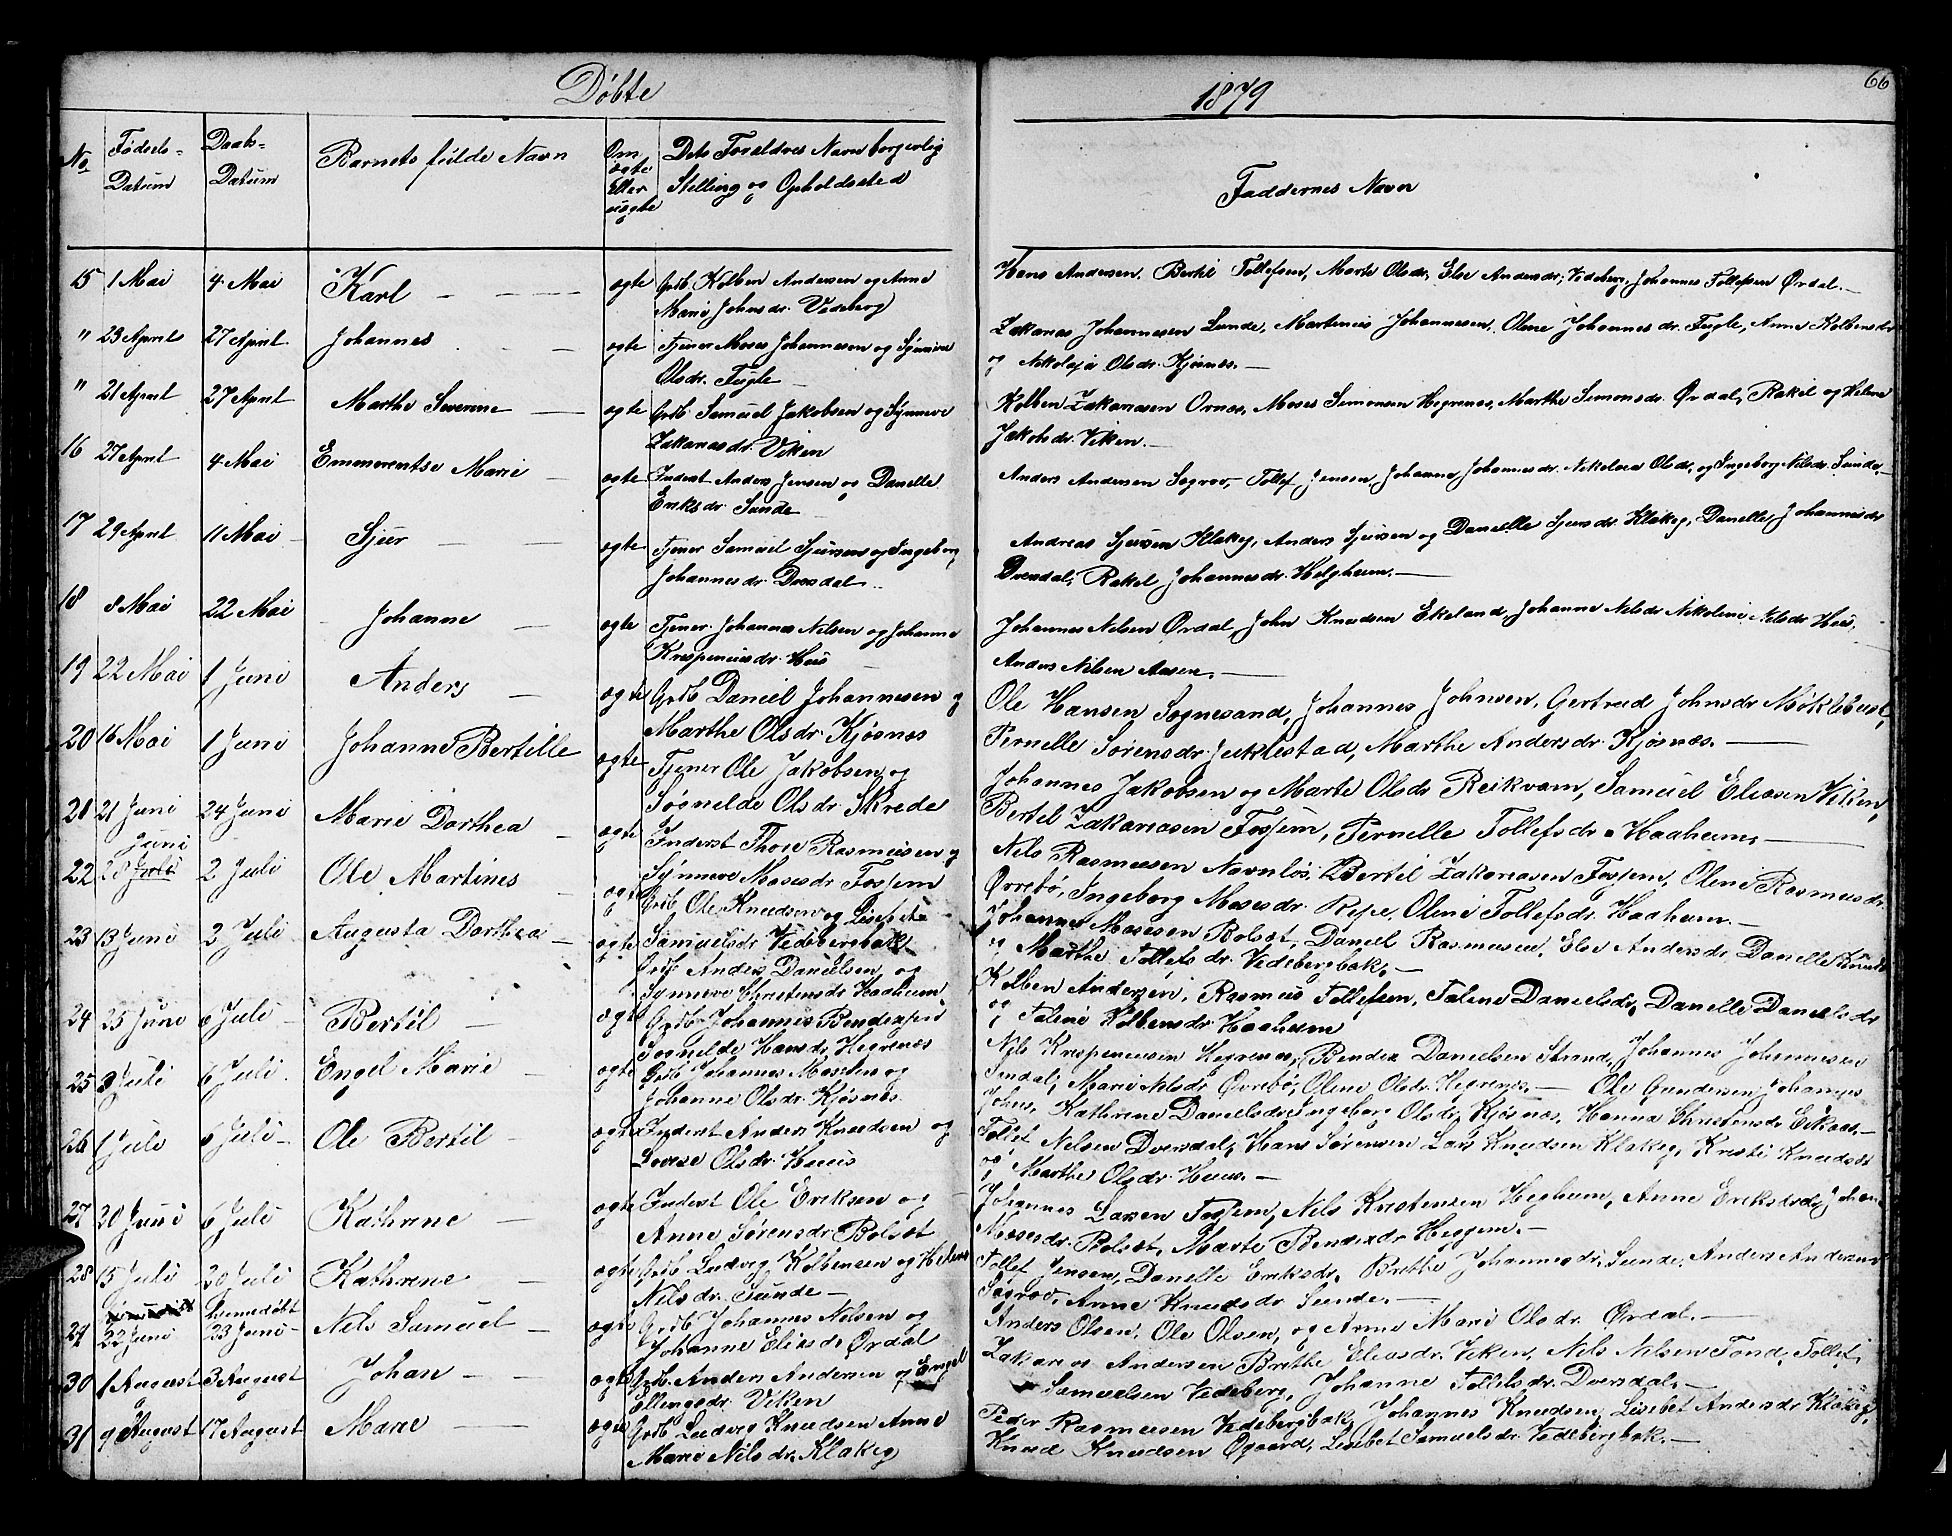 Døbte
1879
66
No
Fødsels-
Datum
Daabs-
Datum
Barnets fulde Navn
Om
ægte
Eller
uægte
Dets Foreldres Navn borgerlig
Stilling og Opholdssted
Faddernes Navn
15 1 Mai 4 Mai Karl ægte Grdb. Kolben Andersen og Anne
Marie Johnsdr. Vedeberg
Hans Andersen, Bertil Tollefsen, Marte Olsdr, Else Andersdr, Vedeberg, Johannes Tollefsen Ørdal.
" 23 April 27 April Johannes ægte Tjener Moses Johannesen og Synneve
Olsdr. Fugle
Zakarias Johannesen Sunde, Martinus Johannesen, Oline Johannesdr. Fugle, Anne Kolbensdr
og Nikolaja Olsdr. Kjøsnæs.
" 21 April 27 April Marthe Severine ægte Grdb Samuel Jakobsen og Synneve
Zakariasdr. Viken
Kolben Zakariasen Ornæs, Moses Simonsen Hegrenes, Marthe Simonsdr. Ørdal, Rakel og Helene
Jakobsdr. Viken.
16 27 April 4 Mai Emmerentse Marie ægte Inderst Anders Jensen og Danelle
Eriksdr Sunde
Anders Andersen Sogrov, Tollef Jensen, Johanne Johannesdr. Nikoline Olsdr, og Ingeborg Nilsdr. Sunde
17 29 April 11 Mai Sjur ægte Tjener Samuel Sjursen og Ingeborg
Johannesdr. Dvesdal
Andreas Sjursen Klakeg, Anders Sjursen og Danielle Sjursdr Klakeg, Danelle Johannesdr
Dvergdal, Rakel Johannesdr. Helgheim.
18 8 Mai 22 Mai Johanne ægte Tjener Johannes Nilsen og Johanne
Krespeniusdr. Hus
Johannes Nilsen Ørdal, John Knudsen Ekeland, Johanne Nilsdr Nikoline Nilsdr Hus,
Anders Nilsen Aasen.
19 22 Mai 1 Juni Anders ægte Grdb Daniel Johannesen og
Marthe Olsdr. Kjøsnæs
Ole Hansen Sognesand, Johannes Johnsen, Gertrud Johnsdr Møklebust,
Pernelle Sørensdr. Juklestad, Marthe Andersdr. Kjøsnæs.
20 16 Mai 1 Juni Johanne Bertille ægte Tjener Ole Jakobsen og
Søgnelde Olsdr. Skrede
Johannes Jakobsen og Marte Olsdr Reikvam, Samuel Eliasen Viken,
Bertel Zakariasen Fossem, Pernelle Tollefsdr. Haaheim.
21 21 Juni 24 Juni Marie Dorthea ægte Inderst Thore Rasmusen og
Synneve Mosesdr Fossem
Nils Rasmusen Navnløs, Bertil Zakariasen Fossem, Oline Rasmusdr.
Øvrebø, Ingeborg Mosesdr. Repe, Oline Tollefsdr. Haaheim.
22 Juni 2 Juli Ole Martines ægte Grdb Ole Knudsen og Lisebet
Samuelsdr Vedebergbak
Johannes Mosesen Bolsæt, Daniel Rasmusen, Else Andersdr. Danelle Knuds
og Marthe Tollefsdr. Vedebergbak.
23 13 Juni 2 Juli Augusta Dorthea ægte Grdb Anders Danielsen og
Synneve Christensdr Haaheim
Kolben Andersen, Rasmus Tollefsen, Taline Danielsdr, Danelle Danielsdr
og Taline Kolbensdr. Haaheim
24 25 Juni 6 Juli Bertil ægte Grdb Johannes Bendexsen
Søgnelde Hansdr Hegrenæs
Nils Krespeniusen Hegrenæs, Bendex Danielsen Strand, Johannes Johannesen
Indal, Marie Nilsdr. Øvrebø, Oline Olsdr. Hegrenæs.
25 3 Juli 6 Juli Engel Marie ægte Grdb Johannes Monsen og
Johanne Olsdr. Kjøsnæs.
Ole Gundersen Johannes
Johns, Kathrine Danielsdr, Ingeborg Olsdr, Kjøsnæs, Hanna Christensdr Eikaas.
26 1 Juli 6 Juli Ole Bertil ægte Inderst Anders Knudsen og
Lovise Olsdr. Huus
Tollef Nilsen Dvesdal, Hans Sørensen Lars Knudsen Klakeg, Kristi Knudsdr
og Marthe Olsdr. Huus.
27 20 Juni 6 Juli Kathrine ægte Inderst Ole Eriksen og
Anne Sørensdr. Bolsæt
Johannes Larsen Fossem, Nils Kristensen Hegheim, Anne Eriksdr, Johan
Mosesdr. Bolsæt, Marte Bendexdr Heggem.
28 15 Juli 20 Juli Kathrine ægte Grdb Ludvig Kolbensen og Helene
Nilsdr. Sunde
Tollef Jensen, Danelle Eriksdr, Brethe Johannesdr. Sunde, Anders Andersen
Sogrov, Anne Knudsdr Sunde.
29 22 Juni Hjemedøbt 23 Juni Nils Samuel ægte Grdb Johannes Nilsen og
Johanne Eliasdr Ørdal
Anders Olsen, Ole Olsen, og Anne Marie Olsdr. Ørdal.
30 1 August 3 August Johan ægte Grdb. Anders Andersen og Engel
Ellingsdr. Viken
Zakarias Andersen Brethe Eliasdr. Viken, Nils Nilsen Fond, Tollef
Samuelsen Vedeberg, Johanne Tollefsdr. Dvesdal.
31 9 August 17 August Marie ægte Grdb Ludvig Knudsen Anne
Marie Nilsdr. Klakeg
Peder Rasmusen Vedebergbak, Johannes Knudsen, Lisebet Andersdr Klakeg,
Knud Knudsen Øgaard, Lisebet Samuelsdr. Vedebergbak.